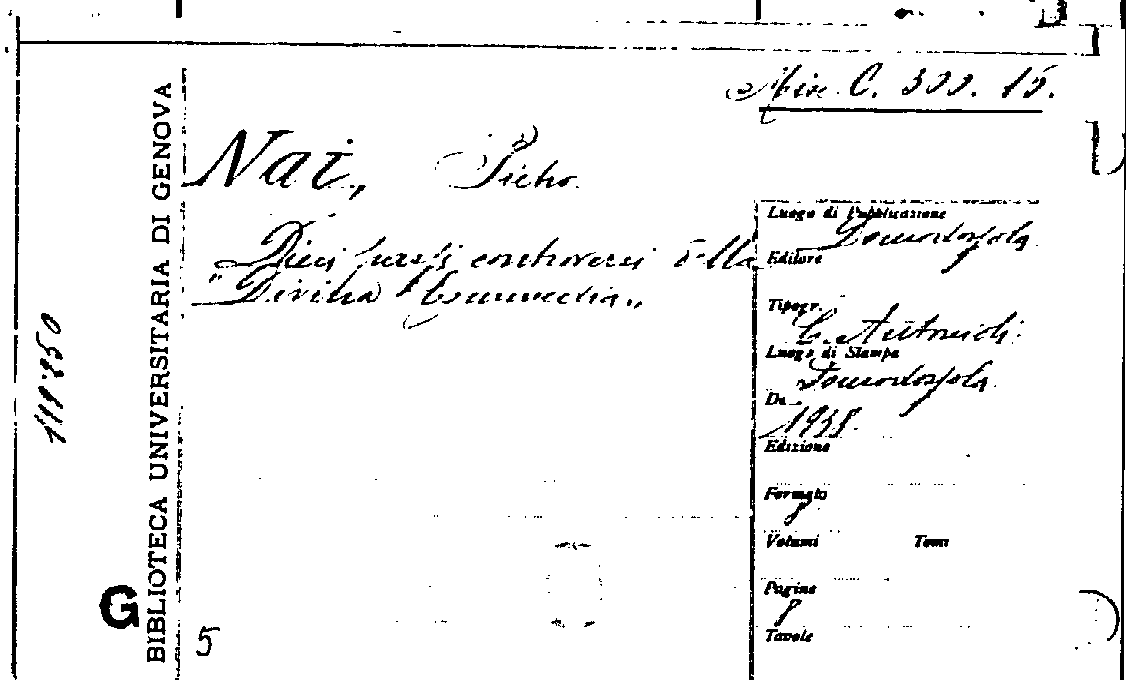 Misc. C. 300. 15.
Nai, Pietro
Dieci passi controversi della
"Divina Commedia"
Luogo di Pubblicazione
Domodossola
Editore
Tipogr.
C. Antonioli
Luogo di Stampa
Domodossola
Da
1938.
Edizione
Formato
8
Volumi Tomi
Pagine
8
Tavole
BIBLIOTECA UNIVERSITARIA DI GENOVA
G
5